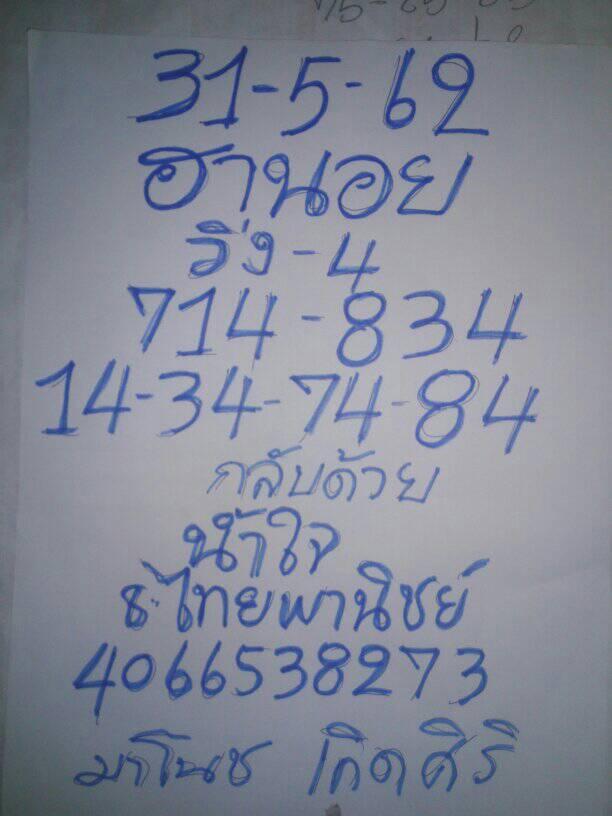 31-5-62
ฮานอย
วิ่ง-4
714-834
14-34-74-84
กลับด้วย
น้ำใจ
ธ.ไทยพานิชย์
4066538273
มาโนช เกิดศิริ